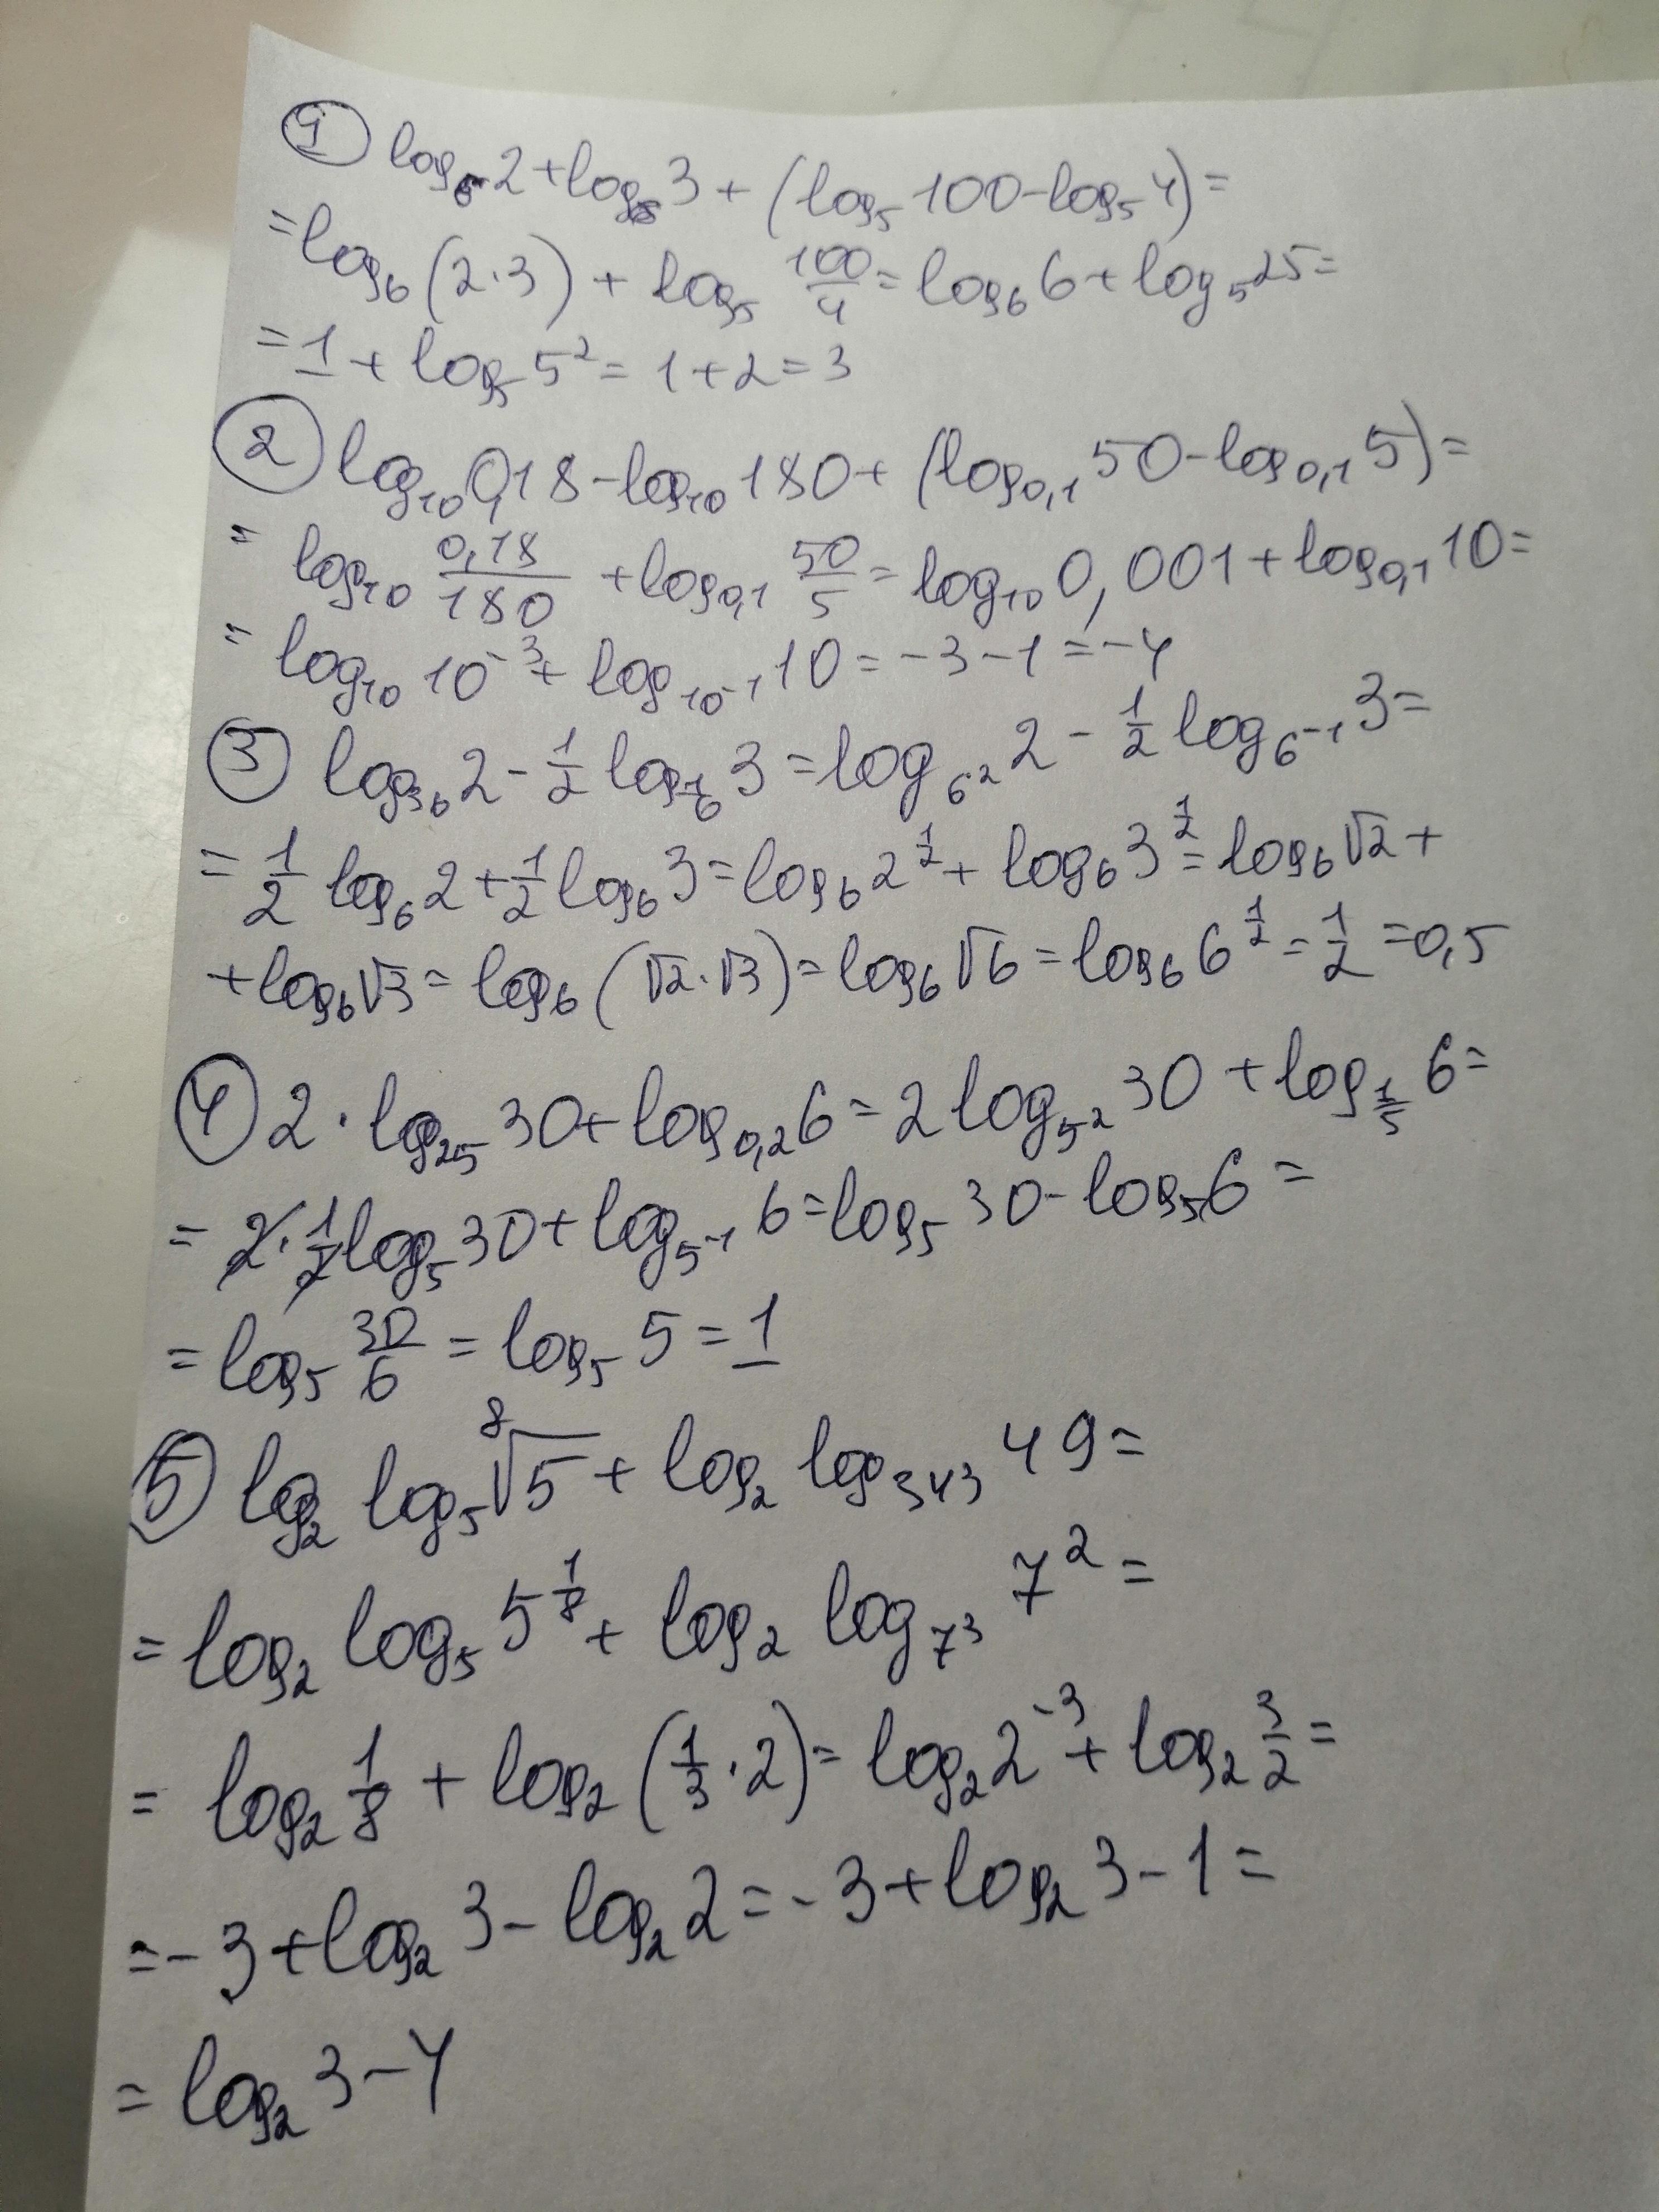 ① log₆ 2 + log₆ 3 + (log₅ 100 - log₅ 4) =
= log₆ (2·3) + log₅ 100/4 = log₆ 6 + log₅ 25 =
= 1 + log₅ 5² = 1 + 2 = 3
② log₁₀ 0,18 - log₁₀ 180 + (log₀,₁ 50 - log₀,₁ 5) =
= log₁₀ 0,18/180 + log₀,₁ 50/5 = log₁₀ 0,001 + log₀,₁ 10 =
= log₁₀ 10⁻³ + log_{10⁻¹} 10 = -3 - 1 = -4
③ log₃₆ 2 - 1/2 log_{1/6} 3 = log_{6²} 2 - 1/2 log_{6⁻¹} 3 =
= 1/2 log₆ 2 + 1/2 log₆ 3 = log₆ 2^{1/2} + log₆ 3^{1/2} = log₆ √2 +
+ log₆ √3 = log₆ (√2·√3) = log₆ √6 = log₆ 6^{1/2} = 1/2 = 0,5
④ 2 · log₂₅ 30 + log₀,₂ 6 = 2 log_{5²} 30 + log_{1/5} 6 =
= 2·1/2 log₅ 30 + log_{5⁻¹} 6 = log₅ 30 - log₅ 6 =
= log₅ 30/6 = log₅ 5 = 1
⑤ log₂ log₅ ⁸√5 + log₂ log₃₄₃ 49 =
= log₂ log₅ 5^{1/8} + log₂ log_{7³} 7² =
= log₂ 1/8 + log₂ (1/3 · 2) = log₂ 2⁻³ + log₂ 3/2 =
= -3 + log₂ 3 - log₂ 2 = -3 + log₂ 3 - 1 =
= log₂ 3 - 4